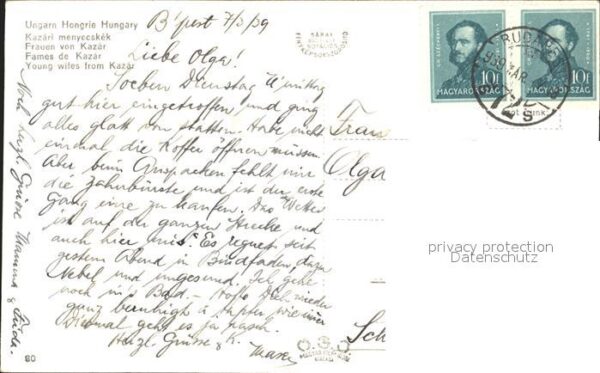 Ungarn Hongrie Hungary
Kazári menyecskék
Frauen von Kazár
Fames de Kazár
Young wifes from Kazár
B'pest 7/3/39
Liebe Olga!
Soeben Dienstag Mittag
gut hier eingetroffen, und ging
alles glatt von statten. Habe nicht
einmal die Koffer öffnen müssen.
Aber beim Auspacken fehlt mir
die Zahnbürste und ist der erste
Gang eine zu kaufen. Das Wetter
ist auf der ganzen Strecke und
auch hier mies. Es regnet seit
gestern Abend in Bindfaden, dazu
Nebel und ungesund. Ich gehe
noch in's Bad. – Hoffe Dich wieder
ganz beruhigt & tapfer wie immer
Diesmal geht es ja rasch.
Herzl. Grüsse & K.
Noch herzl. Grüsse &
Frau
Olga
Sch
10f
MAGYARORSZÁG
10f
MAGYARORSZÁG
BUDAPEST
privacy protection
Datenschutz
80